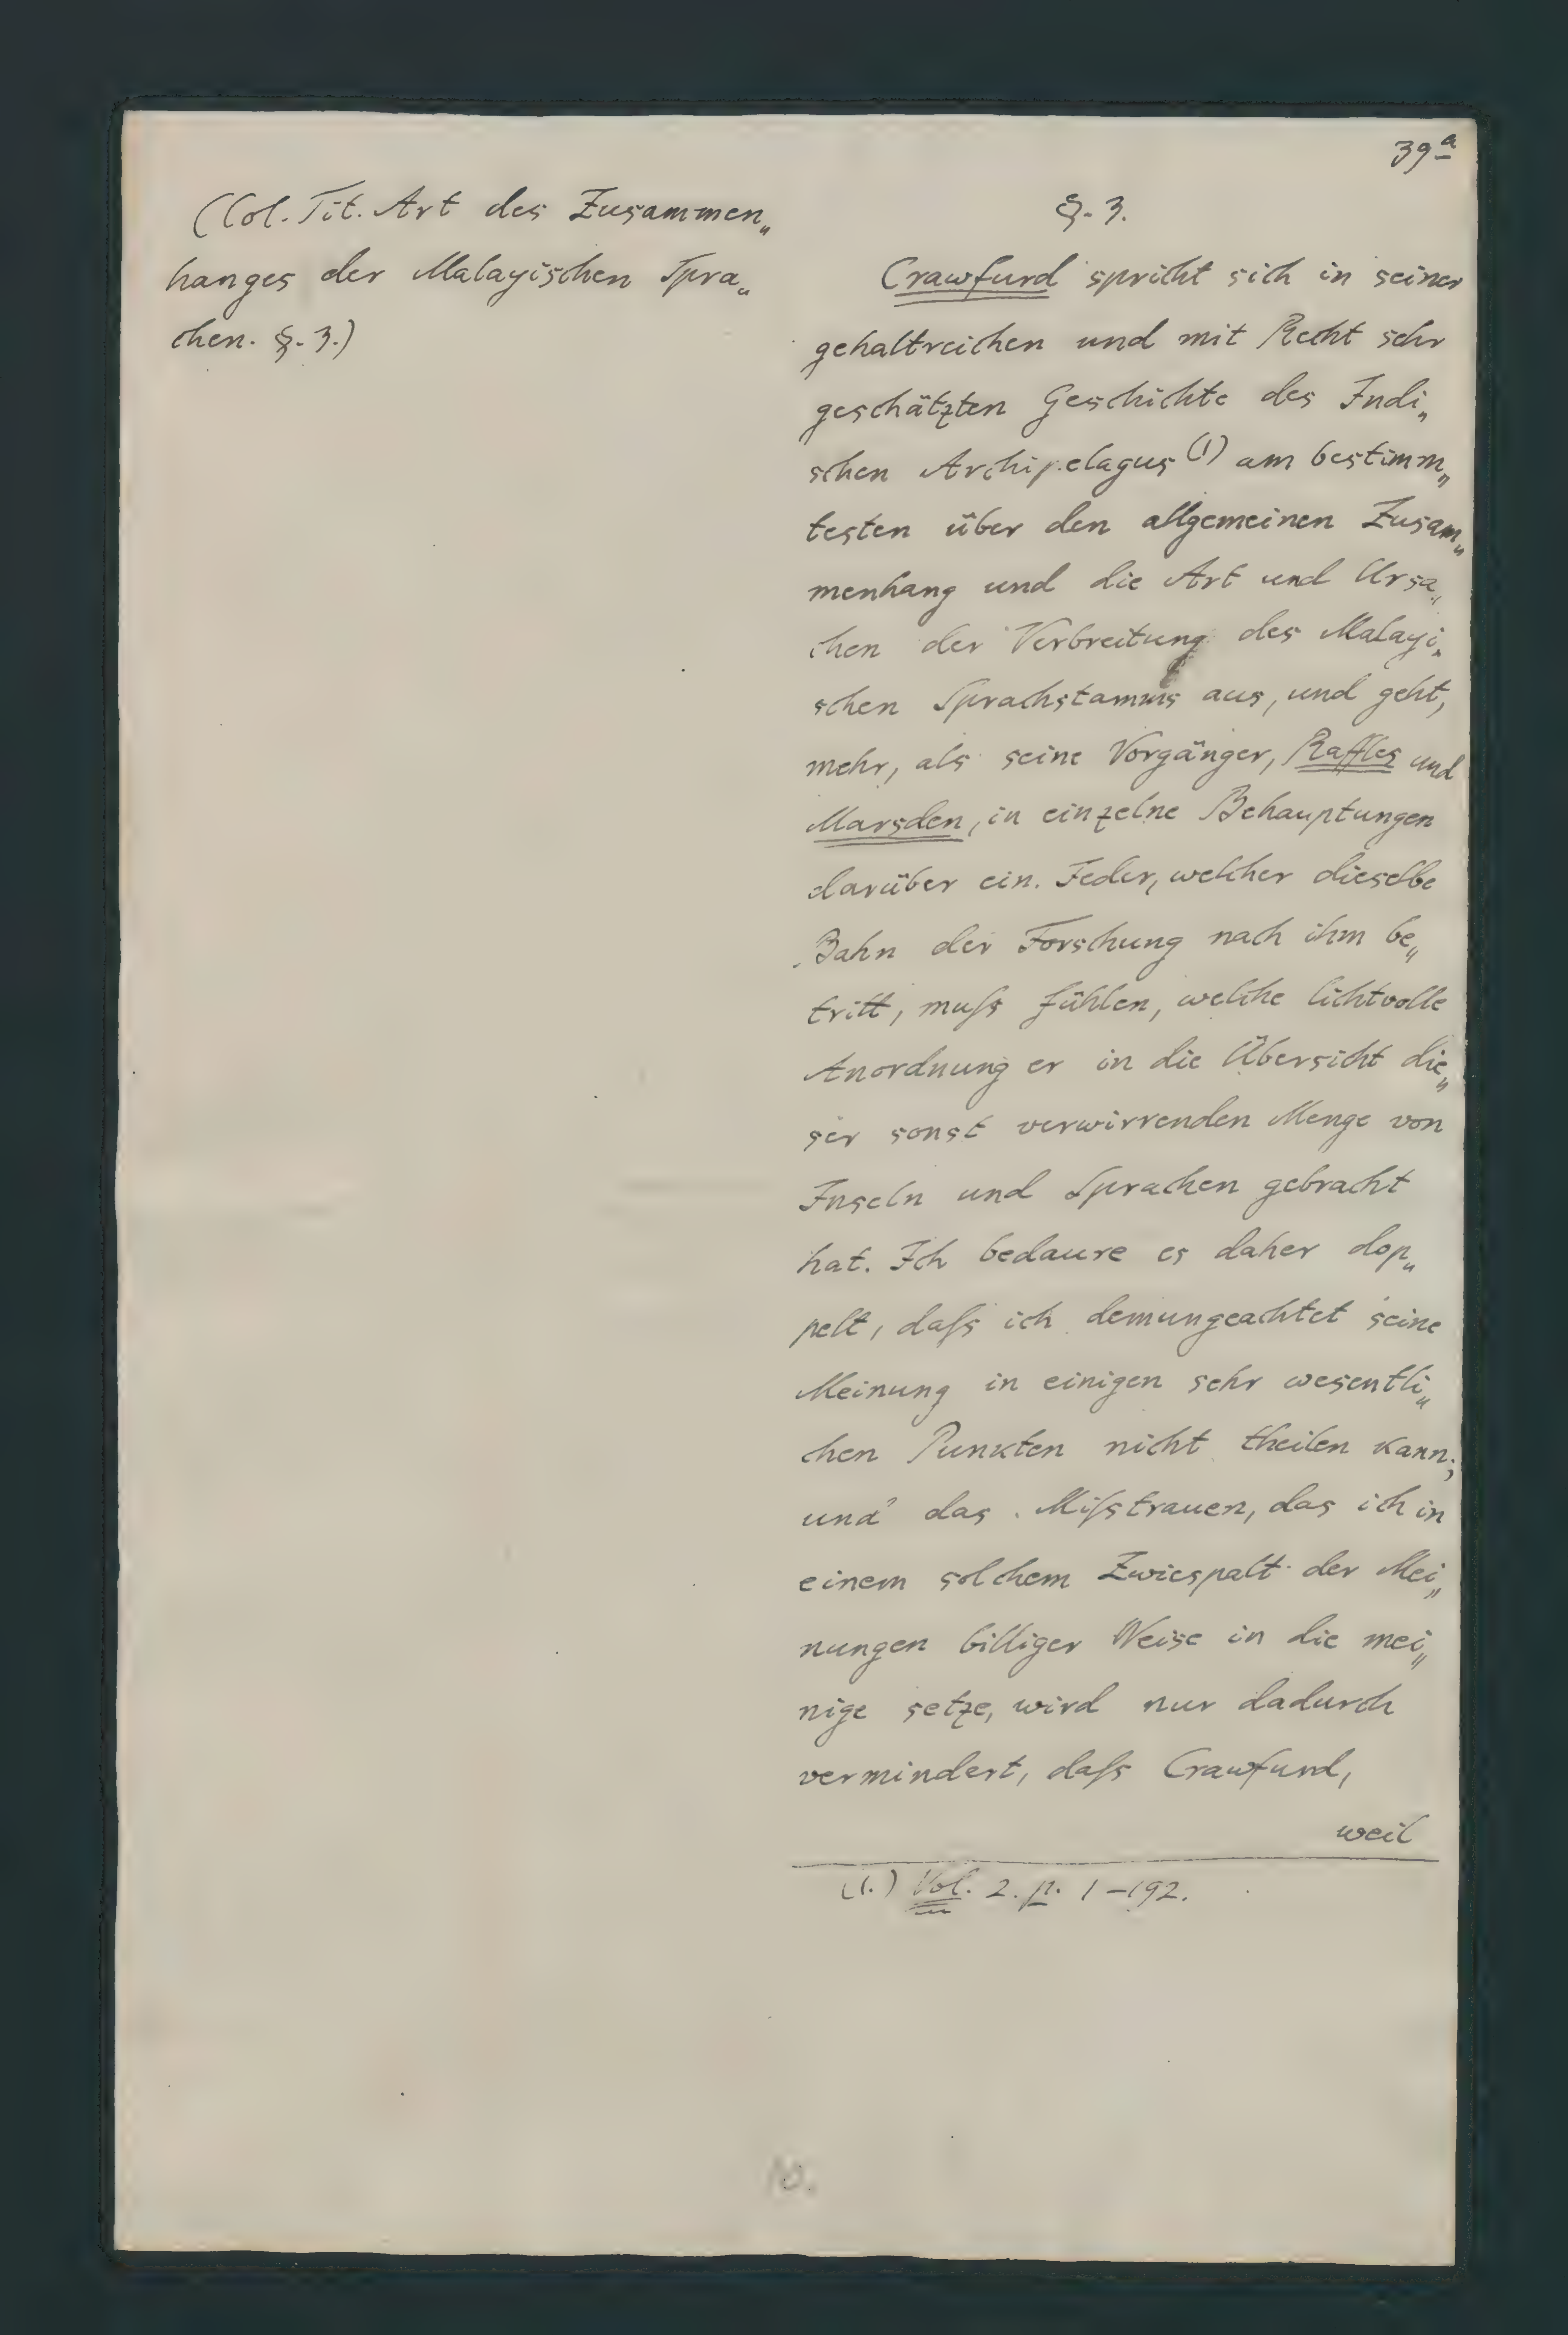 39a
(Col. Tit. Art des Zusammen„
hanges der Malayischen Spra„
chen. §. 3.)
§. 3.
Crawfurd spricht sich in seiner
gehaltreichen und mit Recht sehr
geschätzten Geschichte des Indi„
schen Archipelagus (1) am bestimm„
testen über den allgemeinen Zusam„
menhang und die Art und Ursa„
chen der Verbreitung des Malayi„
schen Sprachstamms aus, und geht,
mehr, als seine Vorgänger, Raffles und
Marsden, in einzelne Behauptungen
darüber ein. Jeder, welcher dieselbe
Bahn der Forschung nach ihm be„
tritt, muſs fühlen, welche lichtvolle
Anordnung er in die Übersicht die„
ser sonst verwirrenden Menge von
Inseln und Sprachen gebracht
hat. Ich bedaure es daher dop„
pelt, daſs ich demungeachtet seine
Meinung in einigen sehr wesentli„
chen Punkten nicht theilen kann;
und das Miſstrauen, das ich in
einem solchem Zwiespalt der Mei„
nungen billiger Weise in die mei„
nige setze, wird nur dadurch
vermindert, daſs Crawfurd,
weil
(1.) Vol. 2. p. 1–192.
10.